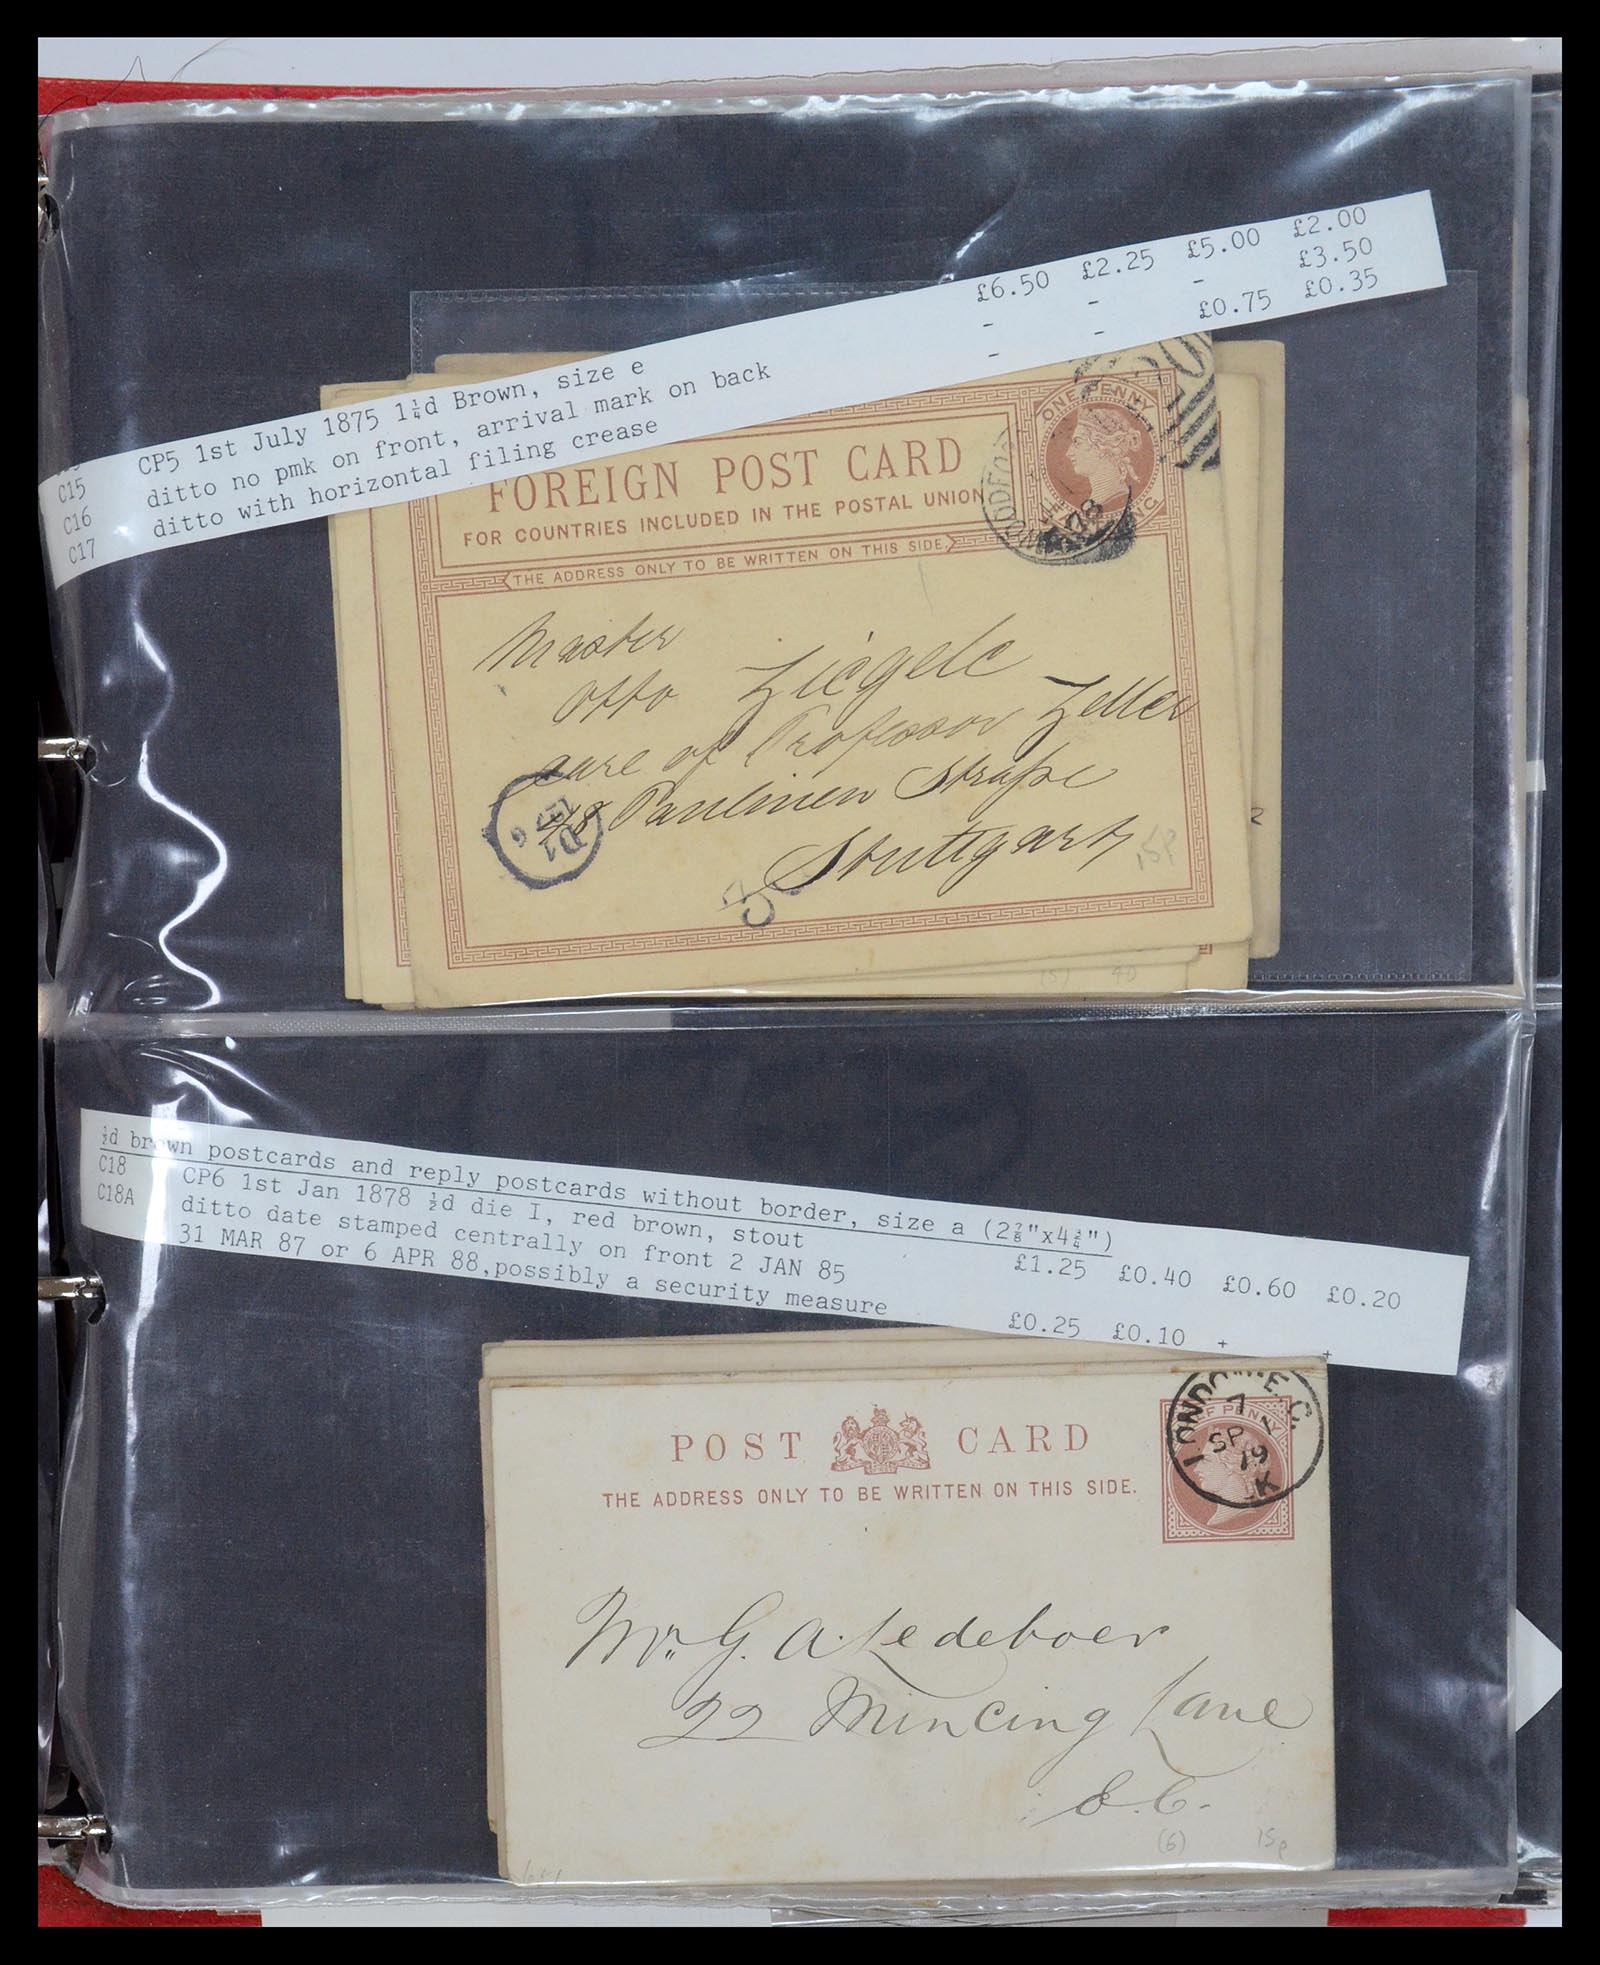 C15 CP5 1st July 1875 1¼d Brown, size e £6.50 £2.25 £5.00 £2.00
C16 ditto no pmk on front, arrival mark on back - - - £3.50
C17 ditto with horizontal filing crease - - £0.75 £0.35
ONE PENNY
FOREIGN POST CARD
FOR COUNTRIES INCLUDED IN THE POSTAL UNION
THE ADDRESS ONLY TO BE WRITTEN ON THIS SIDE
Master
Otto Ziegele
care of Professor Zeller
48 Paulinen Strasse
Stuttgart
D1
15p
(5) 40
2
½d brown postcards and reply postcards without border, size a (2⅞"x4¾")
C18 CP6 1st Jan 1878 ½d die I, red brown, stout £1.25 £0.40 £0.60 £0.20
C18A ditto date stamped centrally on front 2 JAN 85
31 MAR 87 or 6 APR 88,possibly a security measure £0.25 £0.10 + +
POST CARD
THE ADDRESS ONLY TO BE WRITTEN ON THIS SIDE.
LONDON E.C.
7
SP 1
79
K
Mr. G. A. Ledeboer
22 Mincing Lane
E.C.
(6) 15p